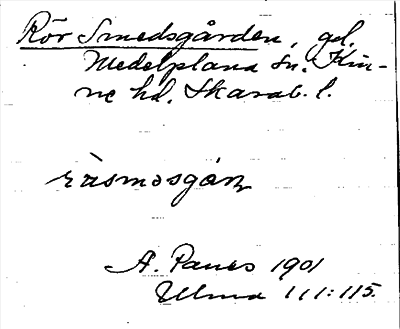 Rör Smedsgården, gd.
Medelplana sn. Kin-
ne hd. Skarab. l.
ræsməsgáɳ
A. Panes 1901
Ulma 111:115.